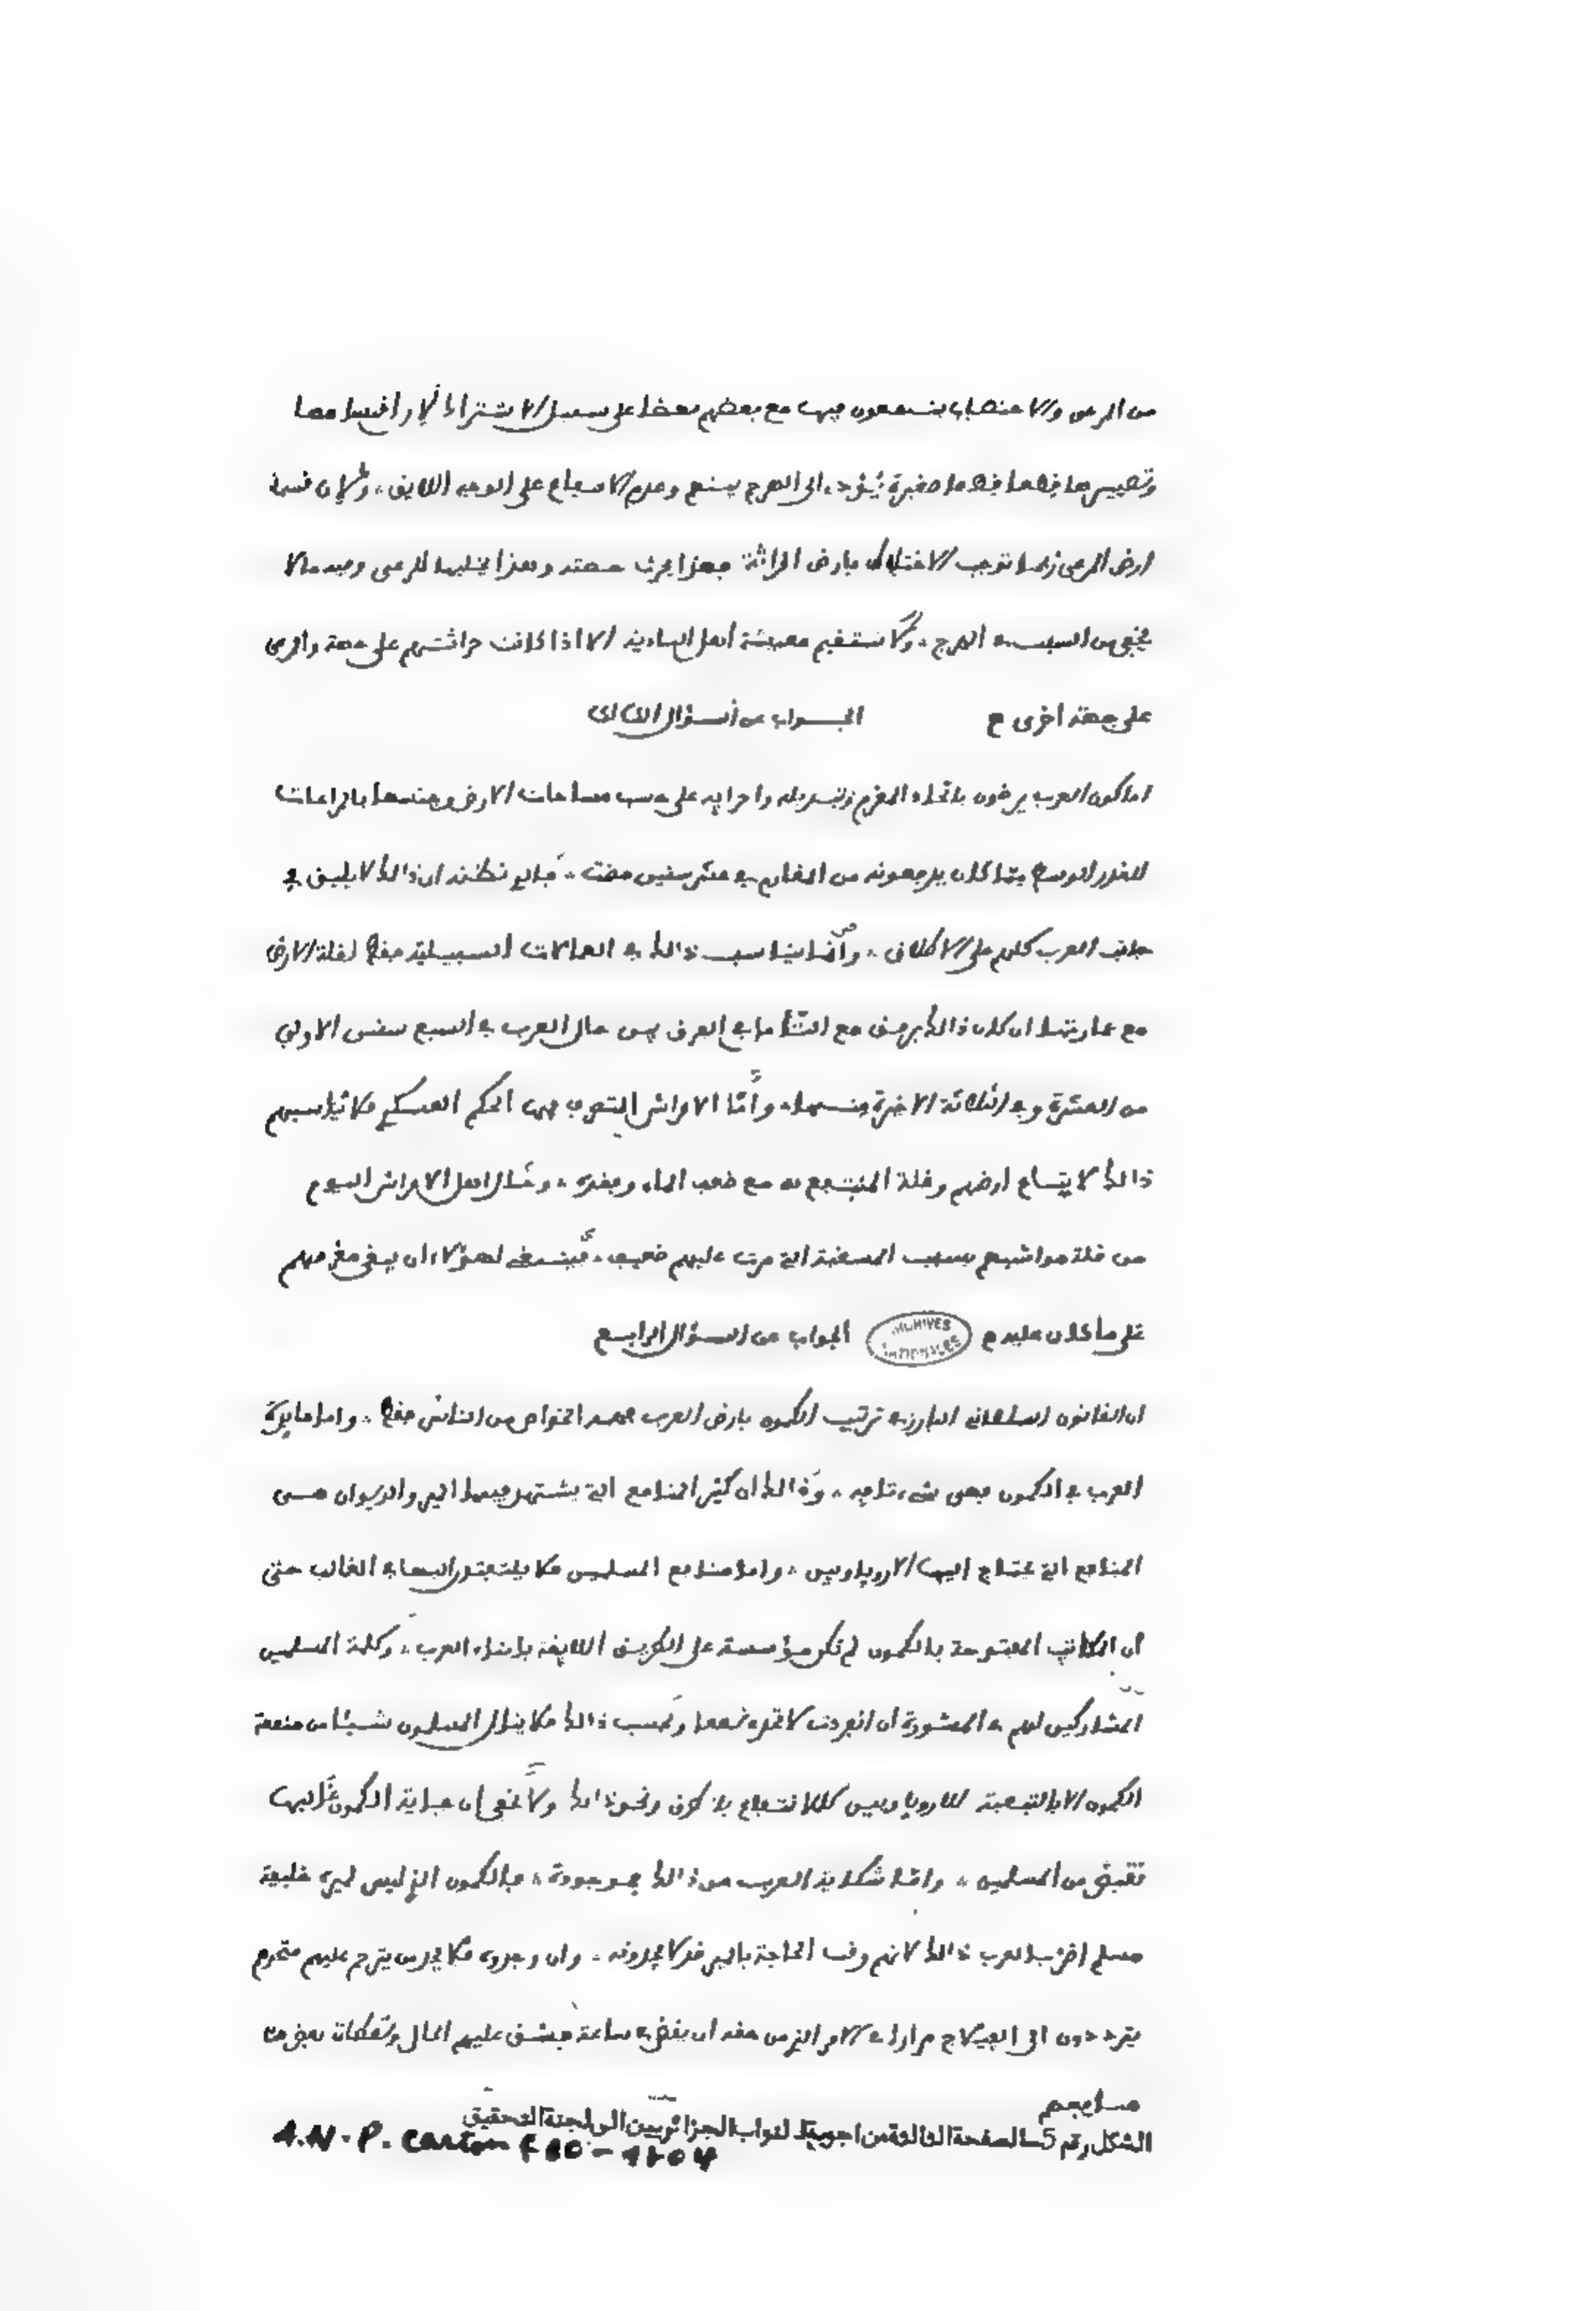 من الرعي والاحتطاب ينتفعون فيها مع بعضهم بعضا على سبيل الاشتراك لان اقتسامها
وتصييرها قطعا قطعا صغيرة يؤدي الى الحرج بينهم وعدم الانتفاع على الوجه اللايق ولان قسمة
ارض الرعي ربما توجب الاختلاط بارض الحراثة فهذا يحرث حصته وهذا يخليها للرعي وفيه ما لا
يخفى من السبب في الحرج ولا تستقيم معيشة أهل البادية الا اذا كانت حراثتهم على جهة والرعي
على جهة اخرى ح الجواب عن السؤال الثالث
اما كون العرب يرضون باتحاد المغرم وتسريله واجرايه على حسب مساحات الارض وهندستها بالزراعات
للقدر الوسط مما كان يدفعونه من المغارم في عشر سنين مضت فالذي نظنه ان ذالك لا يليق في
جانب العرب كلهم على الاطلاق وانما يناسب ذالك في العمالات السبيلية فقط لغلة الارض
مع عمارتها ان كان ذالك برفق مع التأمل في الفرق بين حال العرب في السبع سنين الاولى
من العشرة وفي الثلاثة الاخيرة منها وأما الاعراش التي فيها الحكم العسكري فلا يناسبهم
ذالك لاتساع ارضهم وقلة المنتفع به مع ضعف الماء وفقده وحال اهل الاعراش اليوم
من قلة مواشيهم بسبب المسغبة التي مرت عليهم ضعيف فينبغي لهؤلاء ان يبقى مغرمهم
على ما كان عليه م ARCHIVES NATIONALES الجواب عن السؤال الرابع
ان القانون السلطاني البارز في ترتيب الكمون بارض العرب قصد الخواص من الناس فقط واما فايدة
العرب في الكمون فهي شيء تافه وذالك ان كثير المنافع التي يشتغل فيها المير والديوان هي
المنافع التي يحتاج اليها الاروباويين واما منافع المسلمين فلا يلتفتون اليها في الغالب حتى
ان المكاتب المفتوحة بالكمون لم تكن مؤسسة على الطريق اللايقة بابناء العرب وكلمة المسلمين
المشاركين لهم في المشورة ان انفردت لا تجدي نفعا وبحسب ذالك فلا ينال المسلمون شيئا من منفعة
الكمون الا بالتبعية للاروباويين كالانتفاع بالطرق ونحو ذالك ولا يخفى ان جباية الكمون غالبها
تقبض من المسلمين واما شكاية العرب من ذالك فموجودة فالكمون الذي ليس لميره خليفة
مسلم اضر بالعرب ذالك لانهم وقت الحاجة بالمير قد لا يجدونه وان وجدوه فلا يجدون من يترجم عليهم فتجدهم
يترددون الى مرارا في الامر الذي من حقه ان يقضى في ساعة فيشق عليهم الحال وتعطلت بعض من
مسايهم
الشكل رقم 5 ـ الصفحة الثالثة من اجوبة النواب الجزائريين الى لجنة التحقيق
A.N.P. carton F 80 - 1704